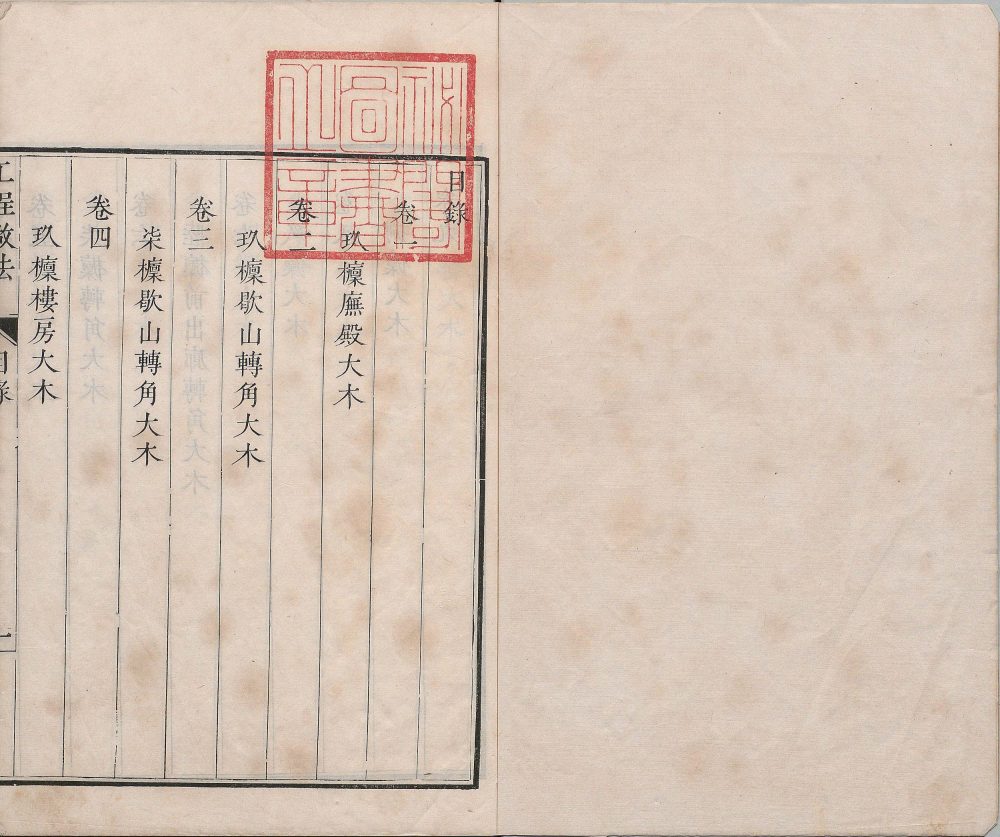 目錄
卷一
玖檁廡殿大木
卷二
玖檁歇山轉角大木
卷三
柒檁歇山轉角大木
卷四
玖檁樓房大木
工程做法
目錄
一